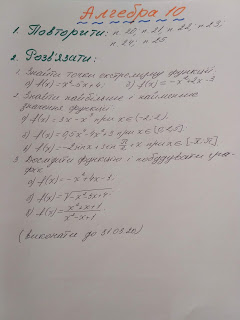 Алгебра 10
1. Повторити: п 20, п 21, п 22, п 23,
п 24, п 25
2. Розв'язати:
1. Знайти точки екстремуму функції
а) f(x) = x²-5x+4. б) f(x) = -x²+2x-3
2. Знайти найбільше і найменше
значення функції:
а) f(x) = 3x - x³ при x∈[-2;2].
3. Дослідити функцію і побудувати гра-
фік
а) f(x) = -x²+4x-3.
б) f(x) = √-x²-3x+4
в) f(x) = x²+x+1 / x²-x+1
(виконати до 31.03.20)